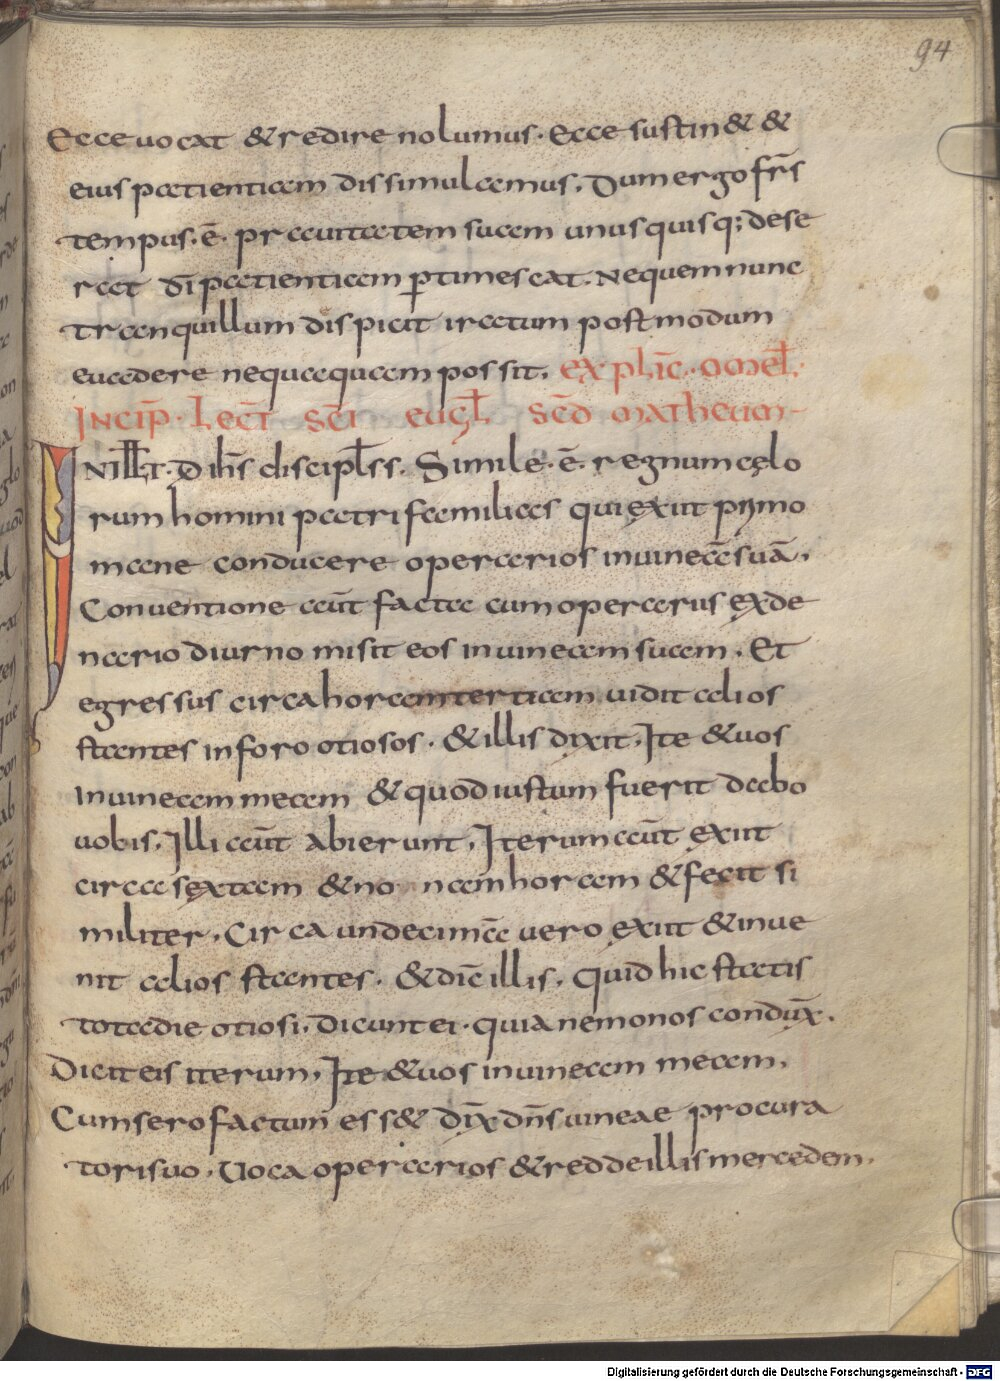 94
Ecce uocat & redire nolumus. Ecce sustin& &
eius patientiam dissimulamus. Dum ergo fr̄s
tempus. ē. prauitatem suam unusquisq; dese
rat dī patientiam ꝑtimescat. Ne quem nunc
tranquillum dispicit iratum postmodum
euadere nequaquam possit. explic̄. omel̄.
Incip̄. Lect̄ sc̄i eugl̄ scd̄ matheum
IN ILL̄T. D ih̄s discipl̄ss. Simile. ē. regnum cęlo
rum homini patri familias qui exiit primo
mane conducere operarios in uineā suā.
Conuentione aut̄ facta cum operarus ex de
nario diurno misit eos in uineam suam. Et
egressus circa horam tertiam uidit alios
stantes in foro otiosos. & illis dixit. Ite & uos
in uineam meam & quod iustum fuerit dabo
uobis. Illi aut̄ abierunt. Iterum aut̄ exiit
circa sextam & no nam horam & fecit si
militer. Circa undecimā uero exiit & inue
nit alios stantes. & dic̄ illis. Quid hic statis
tota die otiosi. Dicunt ei. quia nemo nos condux̄.
Dicit eis iterum. Ite & uos in uineam meam.
Cum sero factum ess& dix̄ dn̄s uineae procura
tori suo. Uoca operarios & redde illis mercedem.
Digitalisierung gefördert durch die Deutsche Forschungsgemeinschaft - DFG